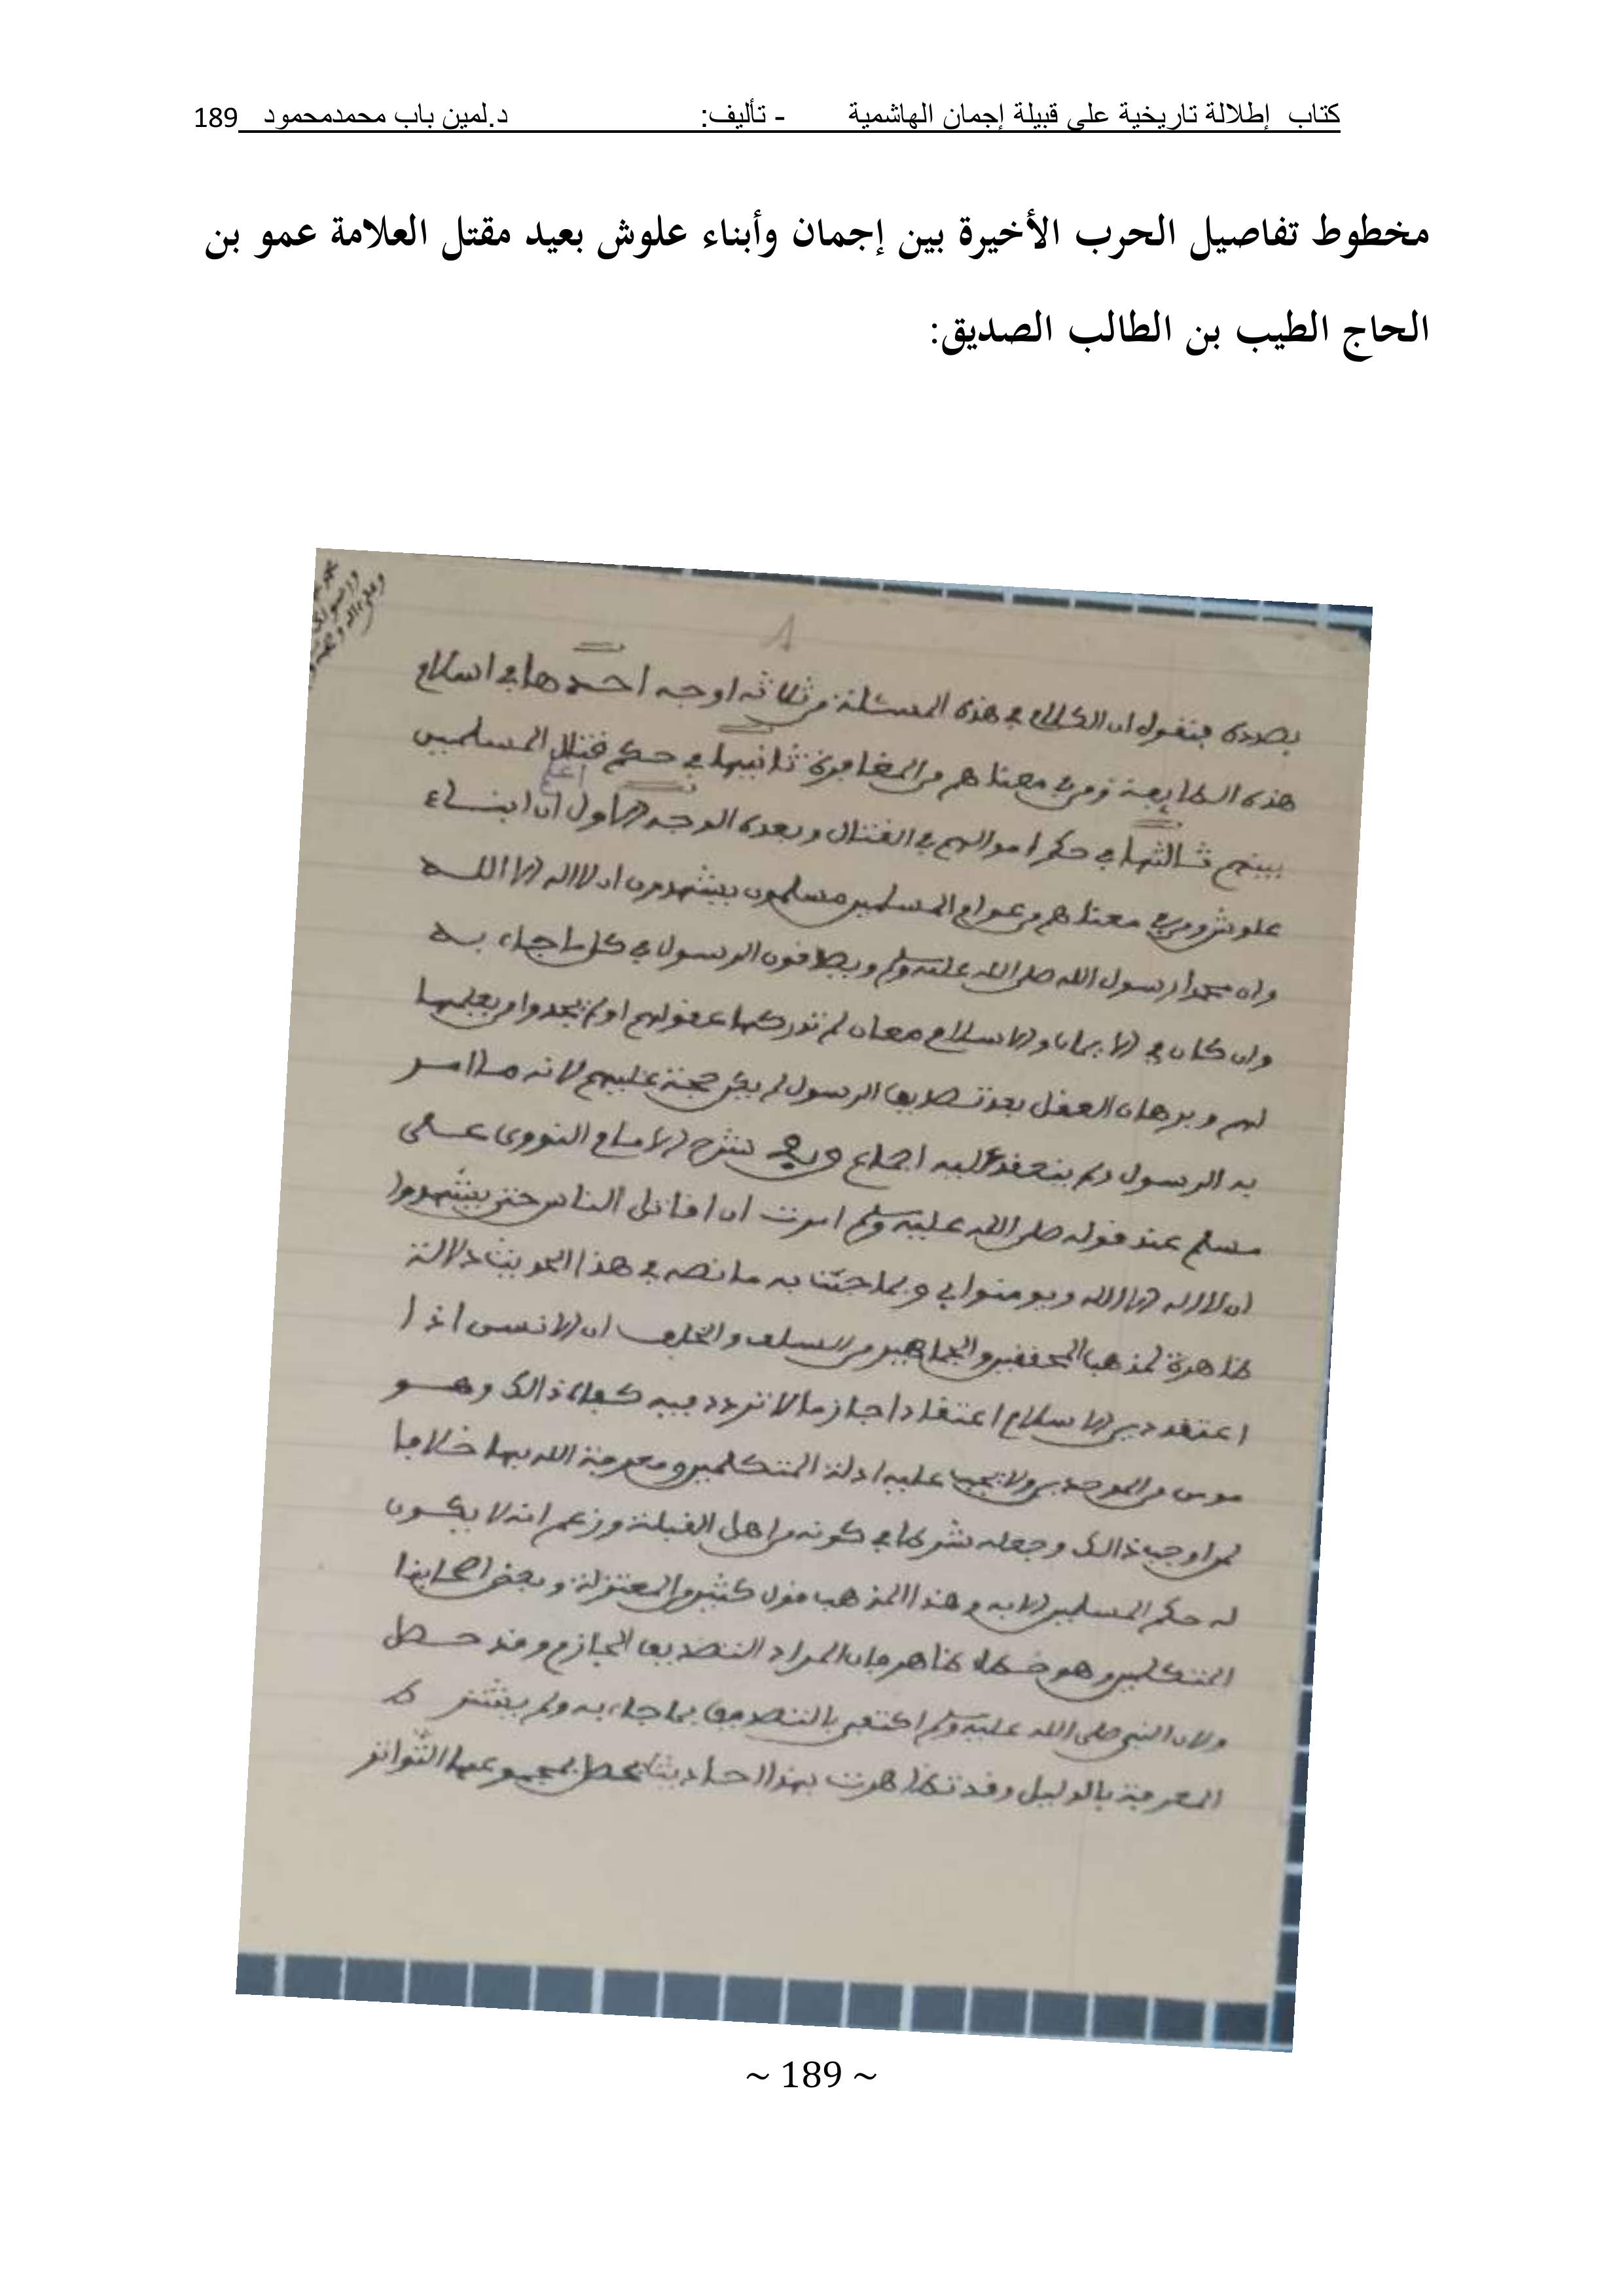 كتاب إطلالة تاريخية على قبيلة إجمان الهاشمية - تأليف: د.لمين باب محمدمحمود 189
مخطوط تفاصيل الحرب الأخيرة بين إجمان وأبناء علوش بعيد مقتل العلامة عمو بن
الحاج الطيب بن الطالب الصديق:
1
بصدده فنقول ان الكلام في هذه المسئلة من ثلاثة اوجه احدها في اسلام
هذه الطايفة ومن في معناهم من المغافرة ثانيها في حكم قتال المسلمين
بينهم ثالثها في حكم اموالهم في القتال وبعده الوجه الاول اعلم ان ابناء
علوش ومن في معناهم من عوام المسلمين مسلمون يشهدون ان لااله الا الله
وان محمدا رسول الله صلى الله عليه وسلم ويصدقون الرسول في كل ما جاء به
وان كان في الايمان والاسلام معان لم تدركها عقولهم اولم يجدوا من يعلمها
لهم وبرهان العقل بعد تصديق الرسول لم يكن حجة عليهم لانه ما امر
به الرسول ولم ينعقد عليه اجماع وفي شرح الامام النووي على
مسلم عند قوله صلى الله عليه وسلم امرت ان اقاتل الناس حتى يشهدوا
ان لااله الا الله ويومنوا بي وبما جئت به ما نصه في هذا الحديث دلالة
ظاهرة لمذهب المحققين والجماهير من السلف والخلف ان الانسن اذا
اعتقد دين الاسلام اعتقادا جازما لا تردد فيه كفاه ذالك وهو
مومن من الموحدين ولا يجب عليه ادلة المتكلمين ومعرفة الله بها خلافا
لمن اوجب ذالك وجعله شرطا في كونه من اهل القبلة وزعم انه لا يكون
له حكم المسلمين الا به وهذا المذهب قول كثير من المعتزلة وبعض اصحابنا
المتكلمين وهو خطا ظاهر فان المراد التصديق الجازم وقد حصل
ولان النبي صلى الله عليه وسلم اكتفى بالتصديق بما جاء به ولم يشتر ط
المعرفة بالدليل وقد تظاهرت بهذا احاديث يحصل بمجموعها التواتر
~ 189 ~